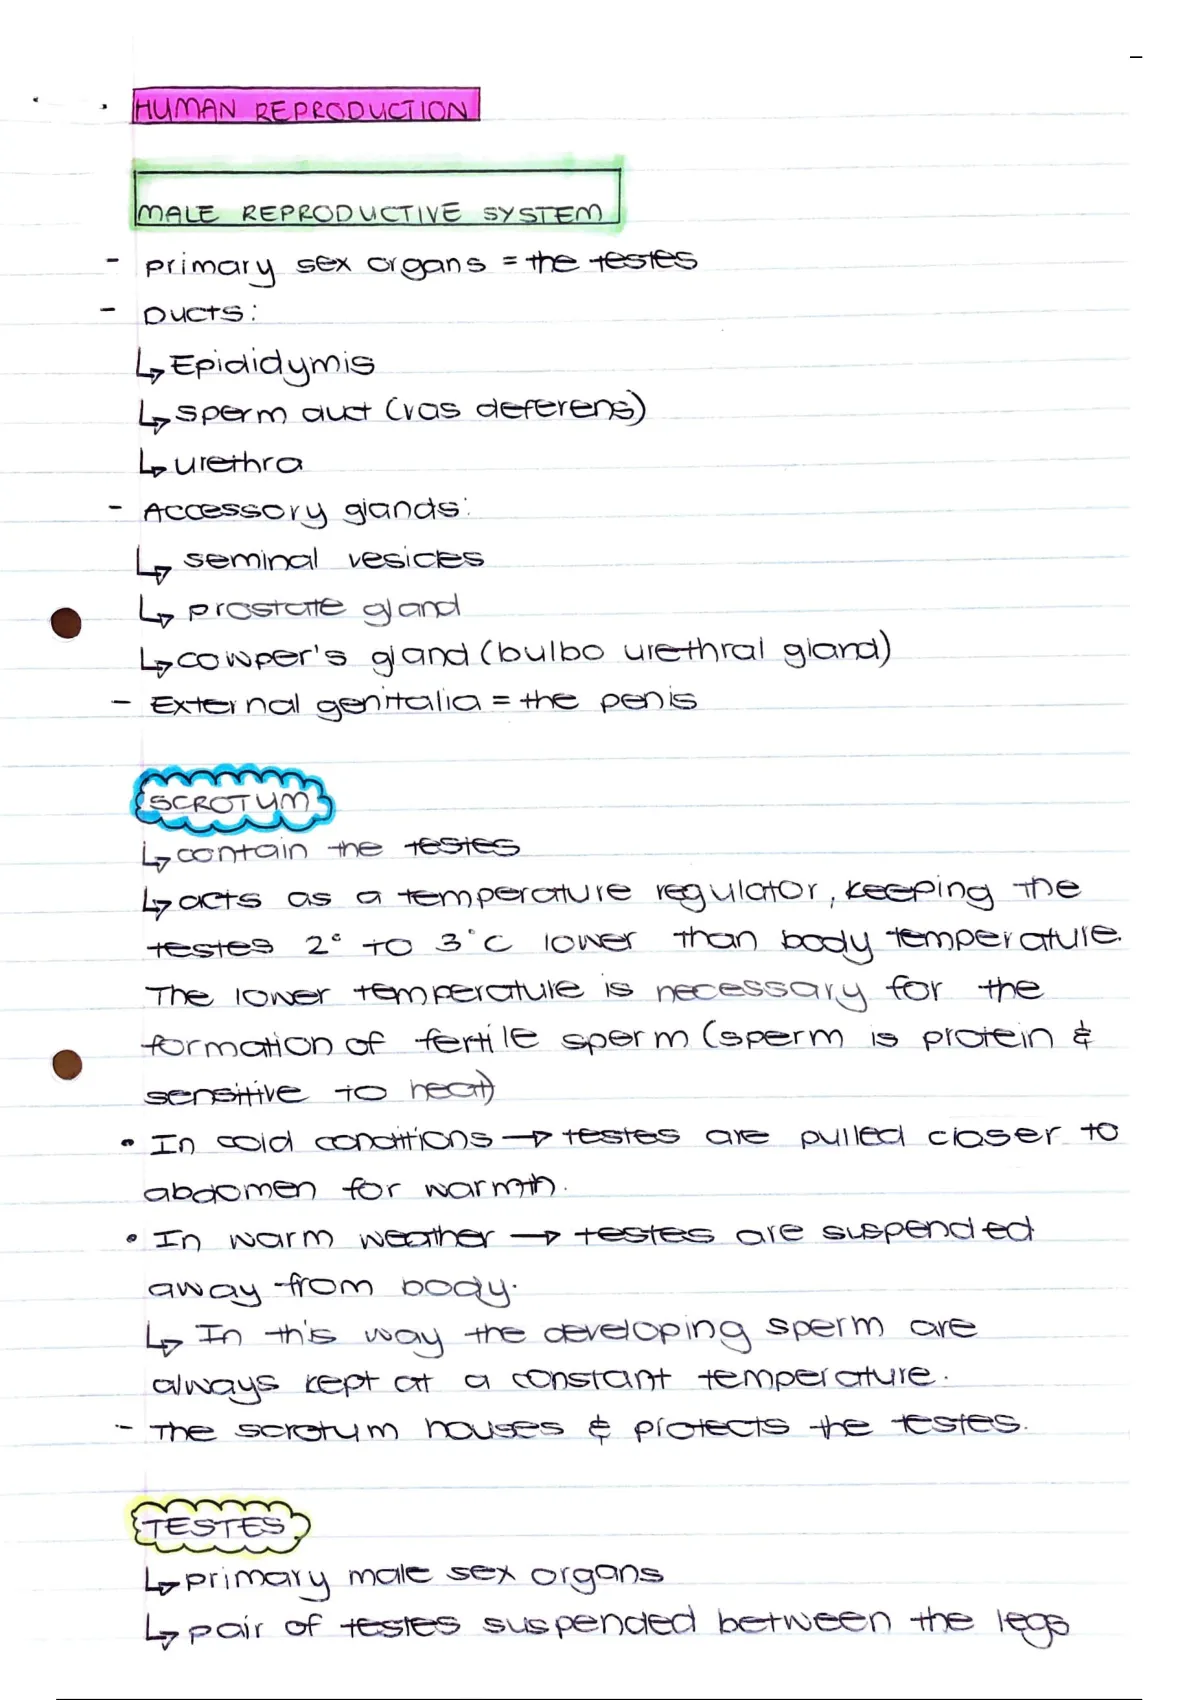 HUMAN REPRODUCTION
MALE REPRODUCTIVE SYSTEM
- primary sex organs = the testes
- Ducts:
↳ Epididymis
↳ sperm duct (vas deferens)
↳ urethra
- Accessory glands:
↳ seminal vesicles
↳ prostate gland
↳ cowper's gland (bulbo urethral gland)
- External genitalia = the penis
SCROTUM
↳ contain the testes
↳ acts as a temperature regulator, keeping the
testes 2° to 3°C lower than body temperature.
The lower temperature is necessary for the
formation of fertile sperm (sperm is protein &
sensitive to heat)
• In cold conditions → testes are pulled closer to
abdomen for warmth.
• In warm weather → testes are suspended
away from body.
↳ In this way the developing sperm are
always kept at a constant temperature.
- The scrotum houses & protects the testes.
TESTES
↳ primary male sex organs
↳ pair of testes suspended between the legs